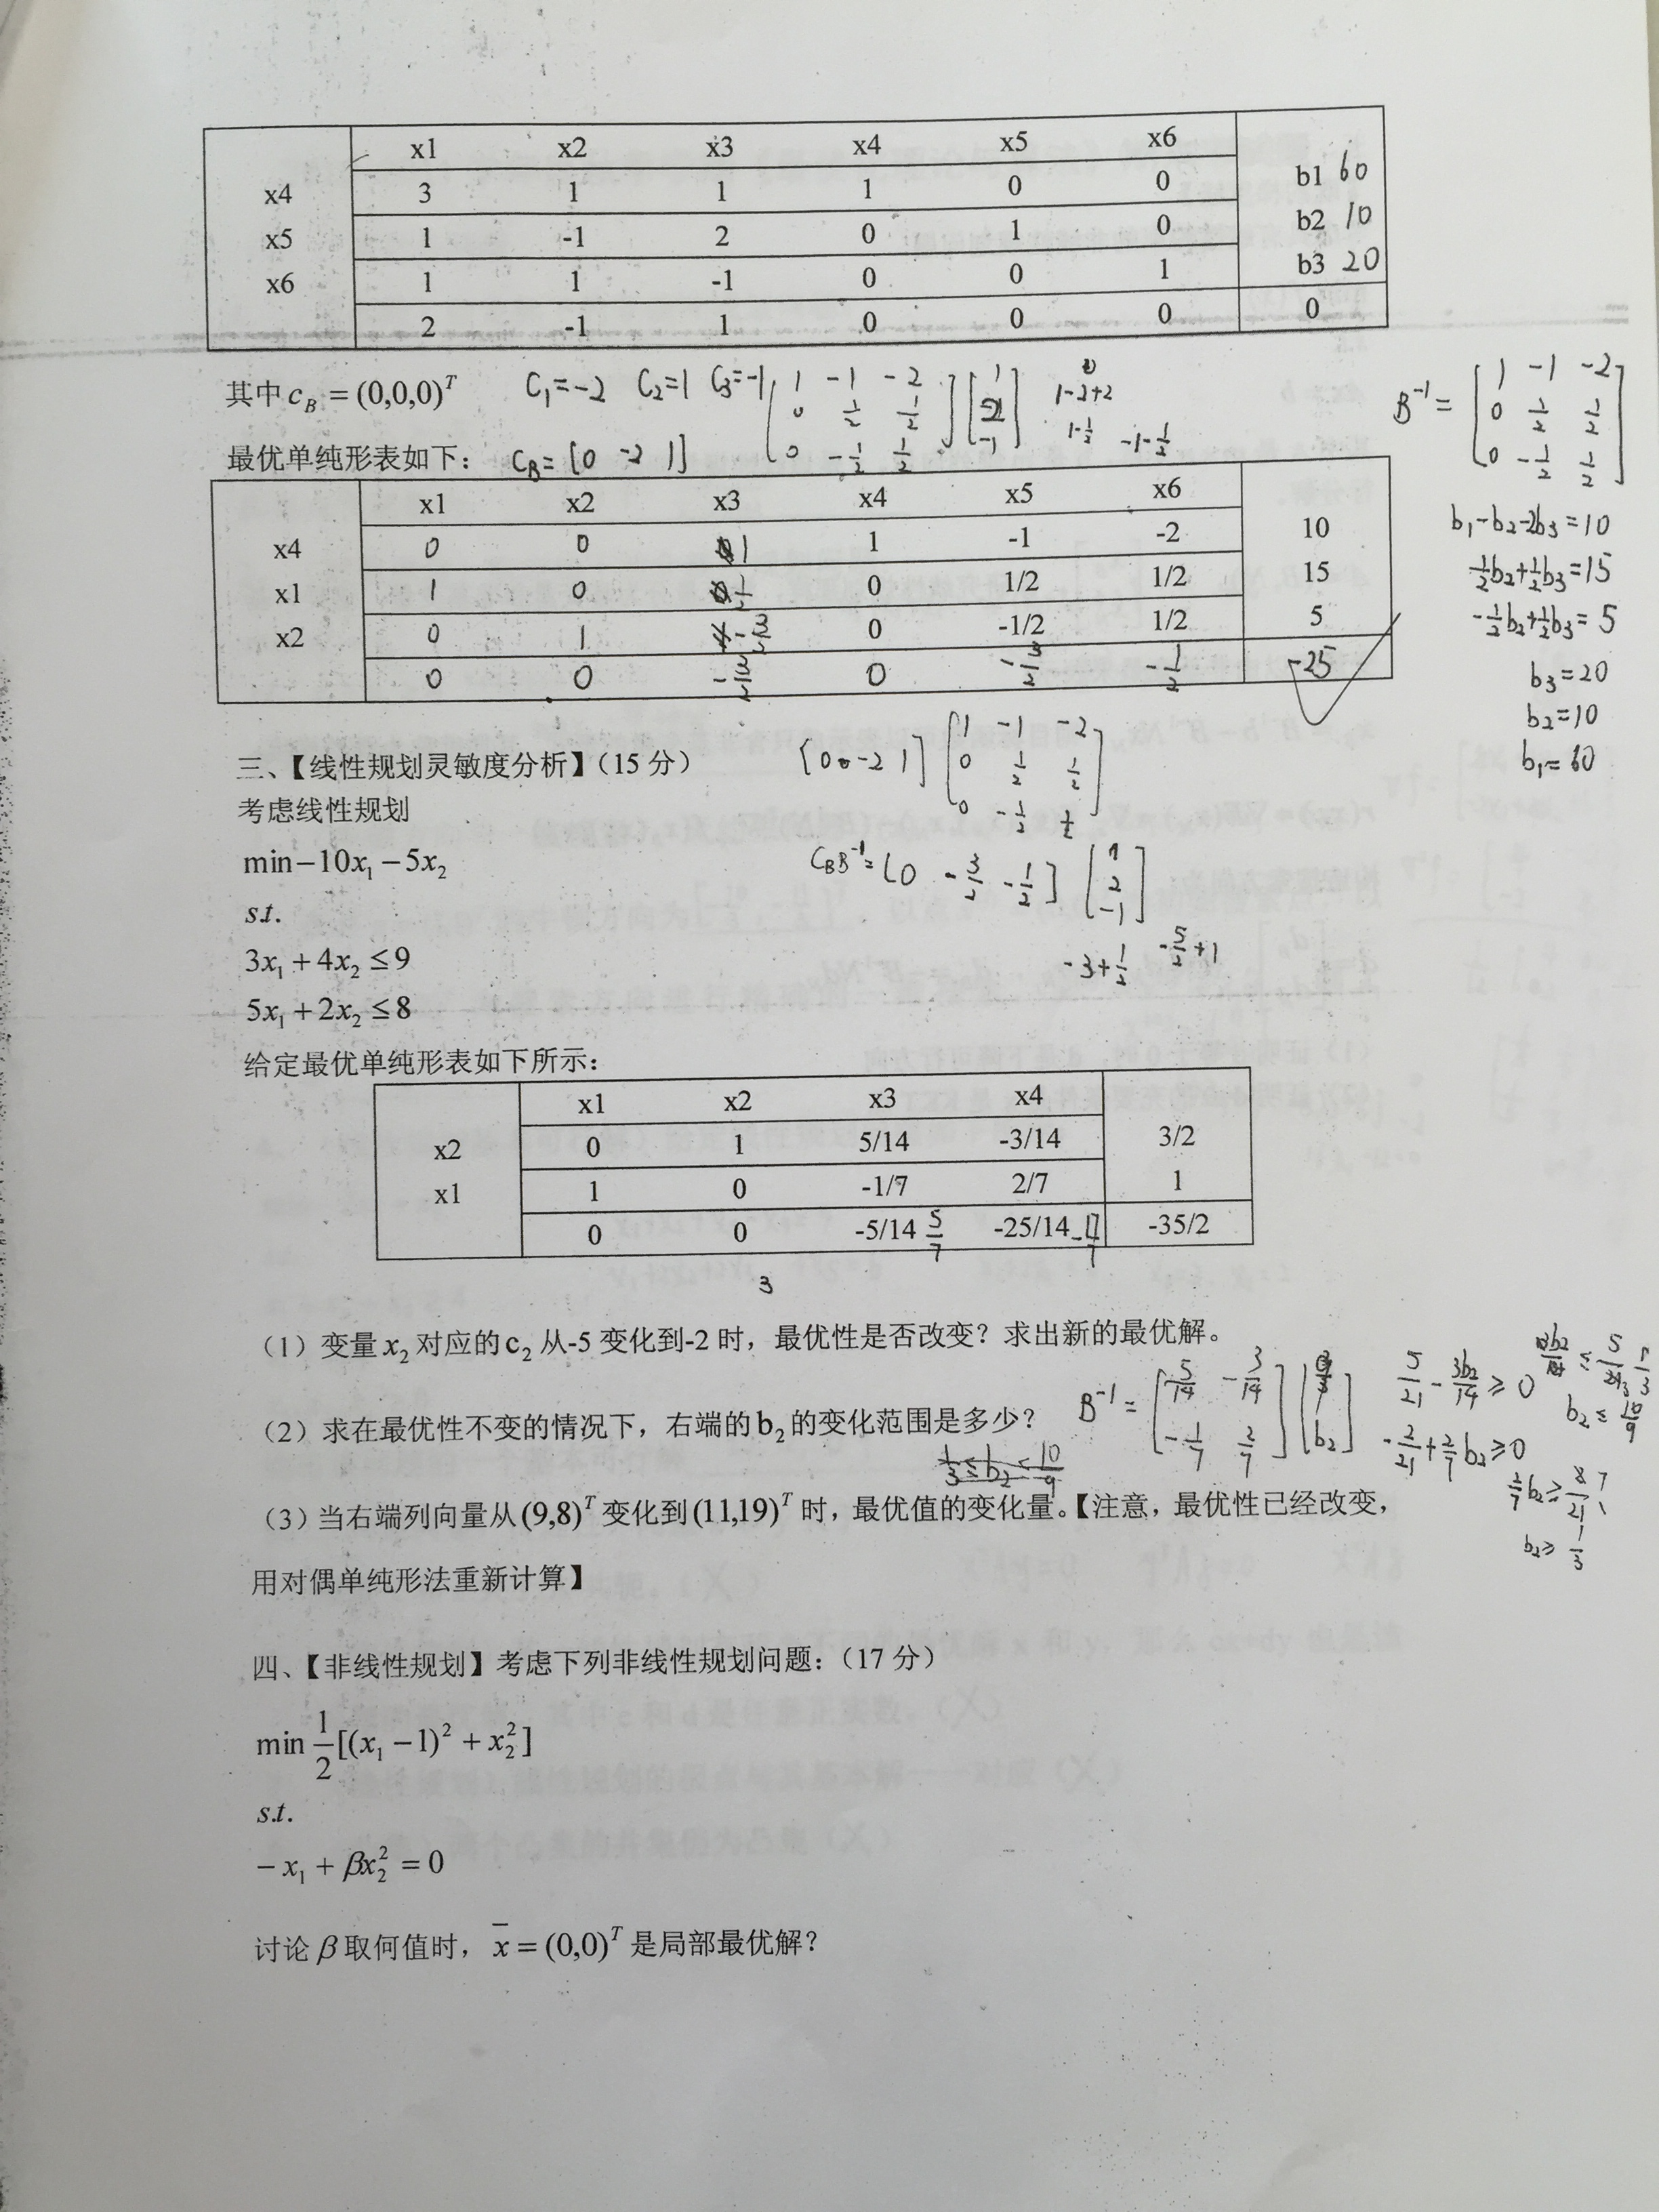 x1 x2 x3 x4 x5 x6
x4 3 1 1 1 0 0 b1 60
x5 1 -1 2 0 1 0 b2 10
x6 1 1 -1 0 0 1 b3 20
2 -1 1 0 0 0 0
其中 c_B = (0,0,0)^T C₁=-2 C₂=1 C₃=-1
1 -1 -2
0 1/2 1/2
0 -1/2 1/2
1
2
-1
1-2+2
1-1/2
-1-1/2
B⁻¹ =
1 -1 -2
0 1/2 1/2
0 -1/2 1/2
最优单纯形表如下: C_B=[0 -2 1]
x1 x2 x3 x4 x5 x6
x4 0 0 1 1 -1 -2 10
x1 1 0 1/2 0 1/2 1/2 15
x2 0 1 -3/2 0 -1/2 1/2 5
0 0 -3/2 0 -3/2 -1/2 -25
b₁-b₂-2b₃=10
1/2b₂+1/2b₃=15
-1/2b₂+1/2b₃=5
b₃=20
b₂=10
b₁=60
三、【线性规划灵敏度分析】(15 分)
[0 -2 1]
1 -1 -2
0 1/2 1/2
0 -1/2 1/2
考虑线性规划
min −10x₁ − 5x₂
C_B B⁻¹=[0 -3/2 -1/2]
1
2
-1
s.t.
3x₁ + 4x₂ ≤ 9
-3+1/2 -5/2+1
5x₁ + 2x₂ ≤ 8
给定最优单纯形表如下所示:
x1 x2 x3 x4
x2 0 1 5/14 -3/14 3/2
x1 1 0 -1/7 2/7 1
0 0 -5/14 5/7 -25/14 -17/7 -35/2
3
(1) 变量 x₂ 对应的 c₂ 从-5 变化到-2 时，最优性是否改变？求出新的最优解。
(2) 求在最优性不变的情况下，右端的 b₂ 的变化范围是多少？
1/3 ≤ b₂ ≤ 10/9
B⁻¹ =
5/14 -3/14
-1/7 2/7
b₂
5/21 - 3b₂/14 ≥ 0
-2/21 + 2/7 b₂ ≥ 0
b₂ ≤ 10/9
b₂ ≥ 1/3
(3) 当右端列向量从 (9,8)^T 变化到 (11,19)^T 时，最优值的变化量。【注意，最优性已经改变，
用对偶单纯形法重新计算】
四、【非线性规划】考虑下列非线性规划问题:(17 分)
min 1/2[(x₁ − 1)² + x₂²]
s.t.
− x₁ + βx₂² = 0
讨论 β 取何值时， x̄ = (0,0)^T 是局部最优解？